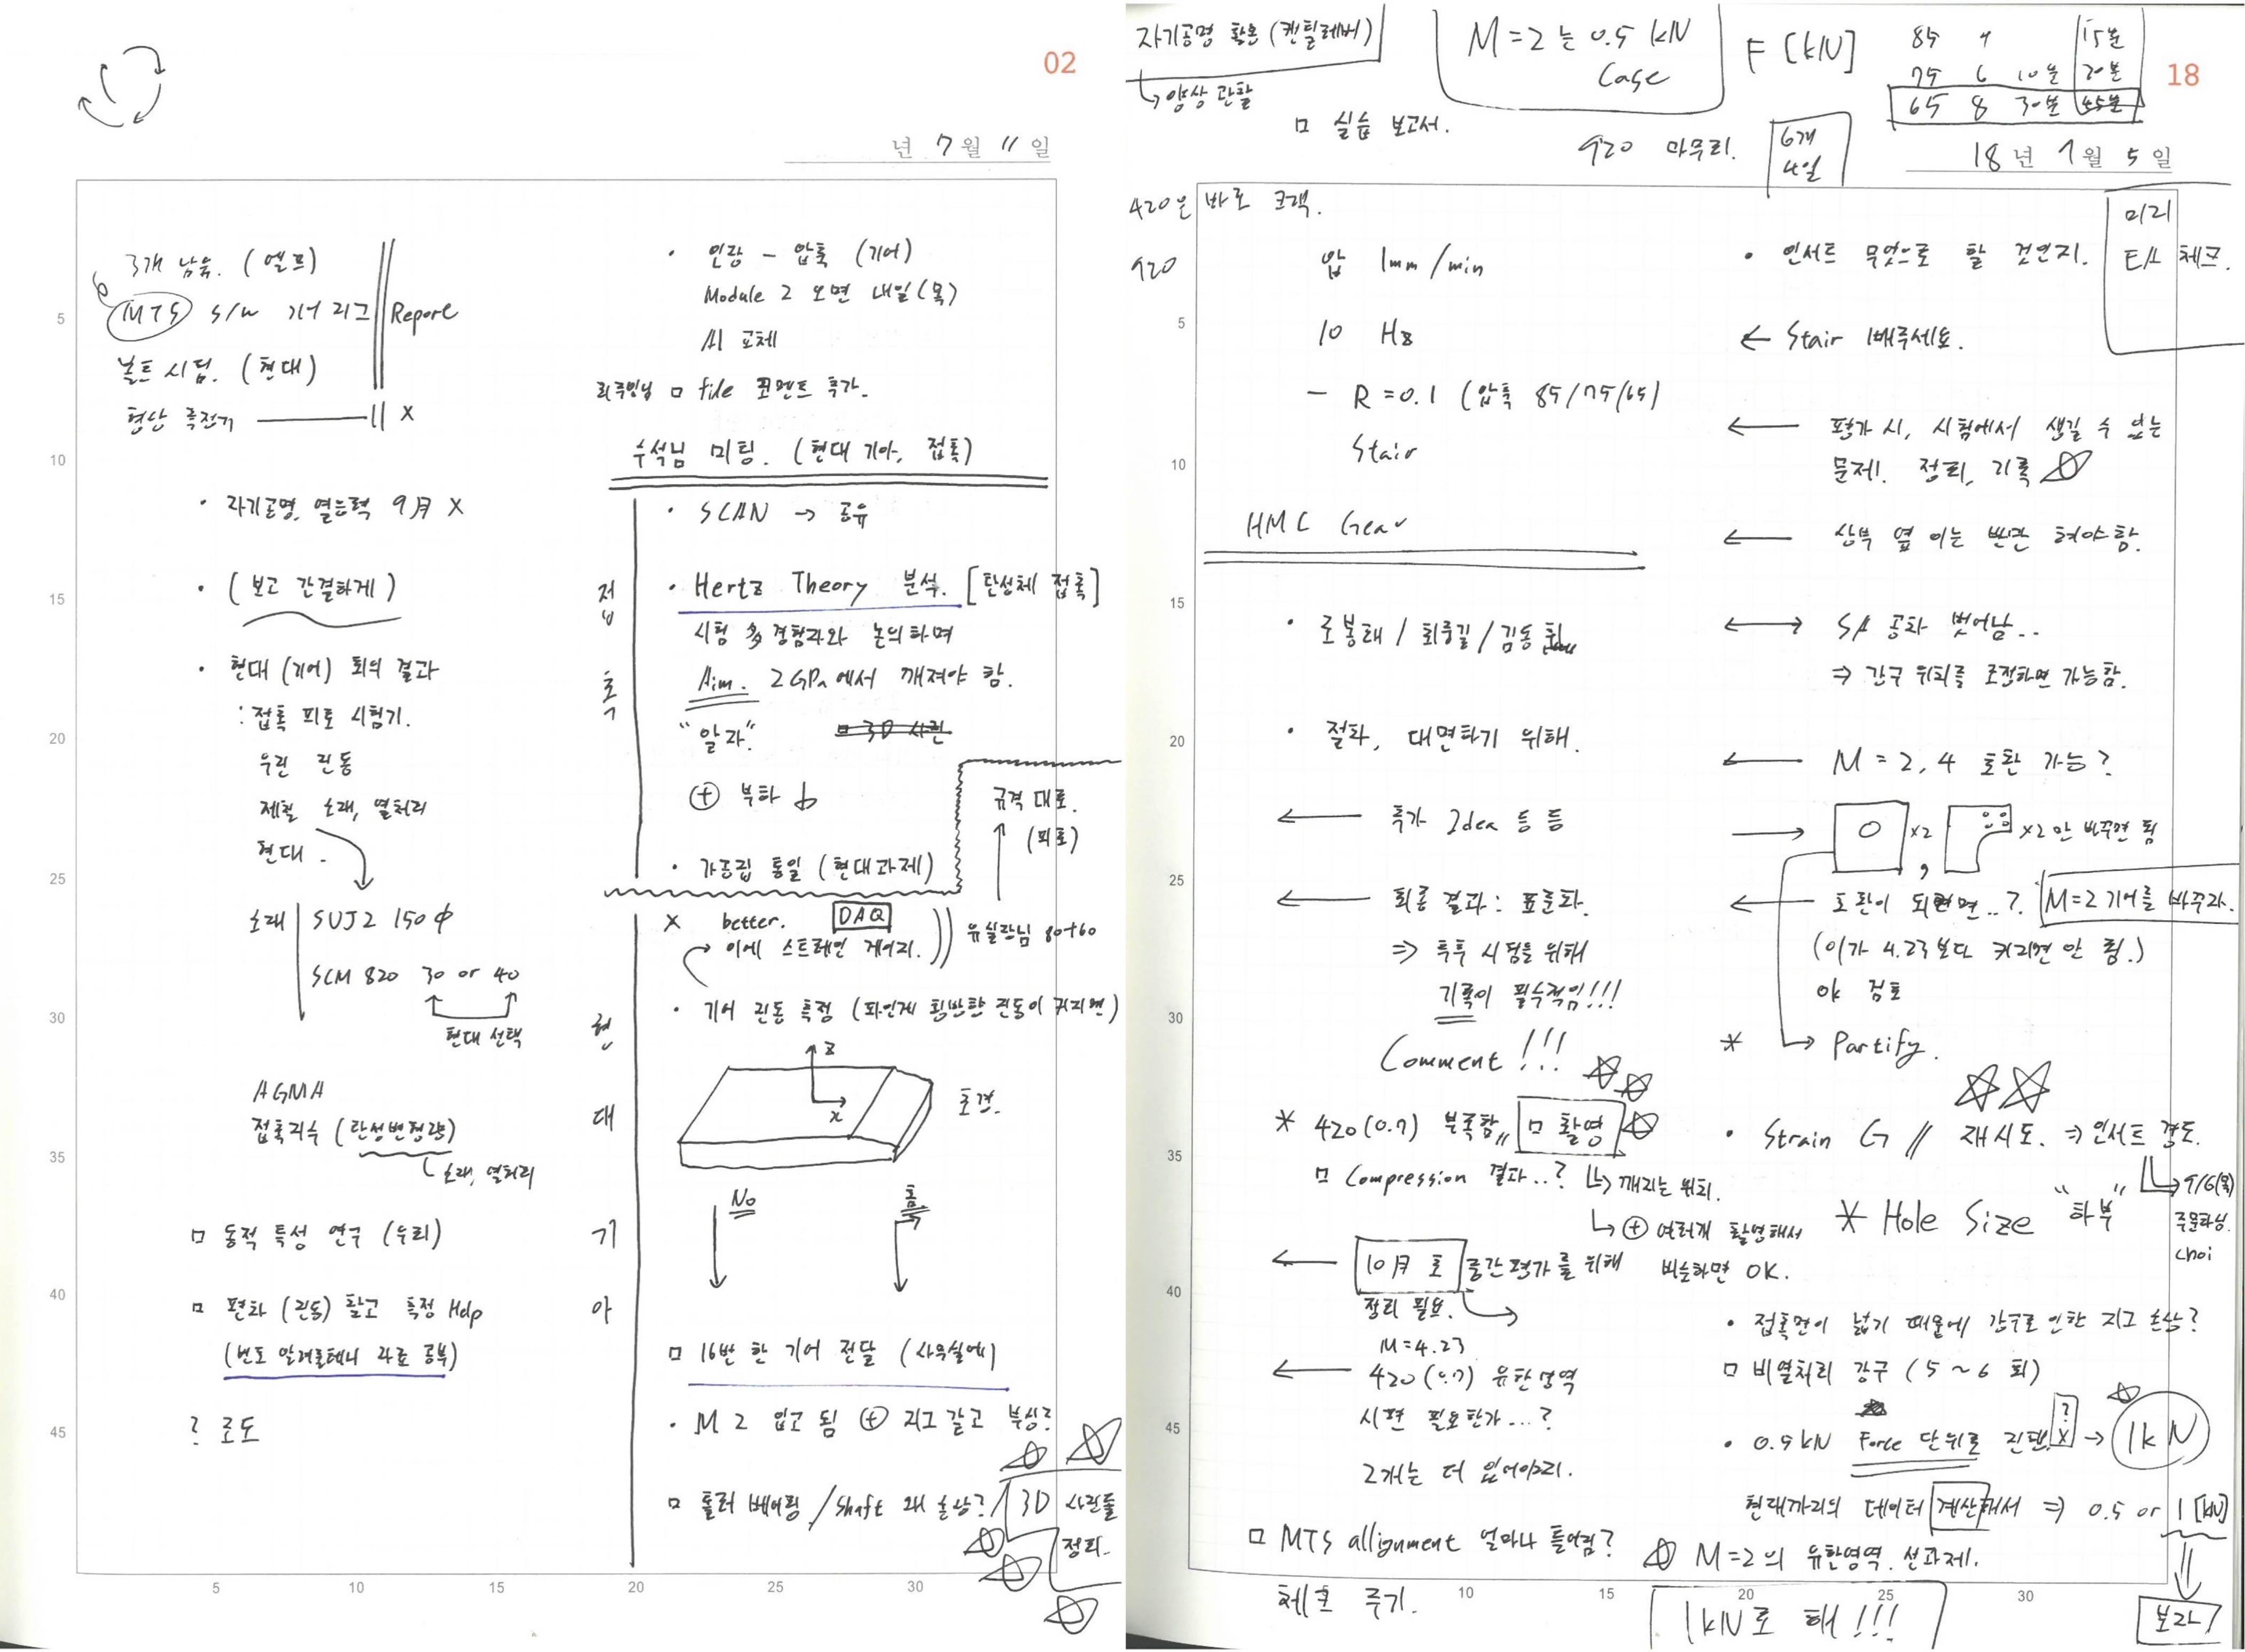 02
년 7월 11일
3개 남음. (엘프)
MTS S/W 기어 지그 Report
볼트 시험. (현대)
형상 측정기 X
· 자기공명, 열능력 9月 X
· (보고 간결하게)
· 현대 (기어) 회의 결과
: 접촉 피로 시험기.
우린 진동
제철 소재, 열처리
현대.
소재 SUJ2 150 ϕ
SCM 820 30 or 40
현대 선택
AGMA
접촉지수 (탄성변형량)
소재, 열처리
□ 동적 특성 연구 (우리)
□ 편차 (진동) 찰고 측정 Help
(번도 알려줄테니 자료 공부)
? 로도
· 인장 - 압축 (기어)
Module 2 오면 내일 (목)
AI 교체
□ file 코멘트 추가.
수석님 미팅. (현대 기아, 접촉)
접촉
· SCAN → 공유
· Hertz Theory 분석. [탄성체 접촉]
시험 多 경험자와 논의하며
Aim. 2GPa에서 깨져야 함.
"알자"
□ 3D 사진
⊕ 부하 b
규격 대로.
(피로)
· 가공법 통일 (현대과제)
현대 기아
X better. DAQ
이에 스트레인 게이지. 유실장님 80+60
· 기어 진동 측정 (파인게 횡방향 진동이 커지면)
z
x
No
홈
□ 16번 한 기어 전달 (사무실에)
· M 2 입고 됨 ⊕ 지그 갈고 부싱?
□ 롤러 베어링 / Shaft 왜 손상? / 3D 사진들
정리.
5 10 15 20 25 30
자기공명 활용 (캔틸레버)
→ 양상 관찰
M=2는 0.5 kN
Case
F [kN]
85 4 15분
75 6 10분 20분
65 8 30분 45분
18
□ 실습 보고서.
920 마무리.
6개
4일
18년 7월 5일
420은 바로 크랙.
920 압 1mm/min
10 Hz
- R=0.1 (압축 85/75/65)
Stair
HMC Gear
· 로봉래 / 최중길 / 김동
· 절차, 대면하기 위해.
← 추가 Idea 등등
← 최종 결과: 표준화.
⇒ 투투 시험을 위해
기록이 필수적임!!!
Comment!!!
* 420(0.7) 부족함 □ 촬영
□ Compression 결과..? ↳ 깨지는 위치.
↳ ⊕ 여러개 촬영해서
비슷하면 OK.
← 10月 초 중간평가를 위해
정리 필요.
M=4.23
← 420(0.7) 유한영역
시편 필요한가...?
2개는 더 있어야지.
□ MTS allignment 얼마나 틀어짐?
체크 주기.
미리
E/L 체크.
· 인서트 무엇으로 할 것인지.
← Stair 빼주세요.
← 평가 시, 시험에서 생길 수 있는
문제! 정리, 기록
← 상부 옆 이는 번갈 혀야함.
↔ SA 공차 벗어남..
⇒ 강구 위치를 조절하면 가능함.
← M=2, 4 호환 가능?
→ x2, x2만 바꾸면 됨
← 호환이 되려면..? M=2 기어를 바꾸자.
(이가 4.23보다 커지면 안 됨.)
ok 검토
* → Partify.
· Strain G // 재시도. ⇒ 인서트 경도.
9/6(목)
주문하심.
choi
* Hole Size "하부"
· 접촉면이 넓기 때문에 강구로 인한 지그 손상?
□ 비열처리 강구 (5~6 회)
· 0.5kN Force 단위로 진행 ? X → 1kN
현대까지의 데이터 계산해서 ⇒ 0.5 or 1 [kN]
M=2의 유한영역. 선과제.
보자!
1kN로 해!!!
5 10 15 20 25 30 35 40 45